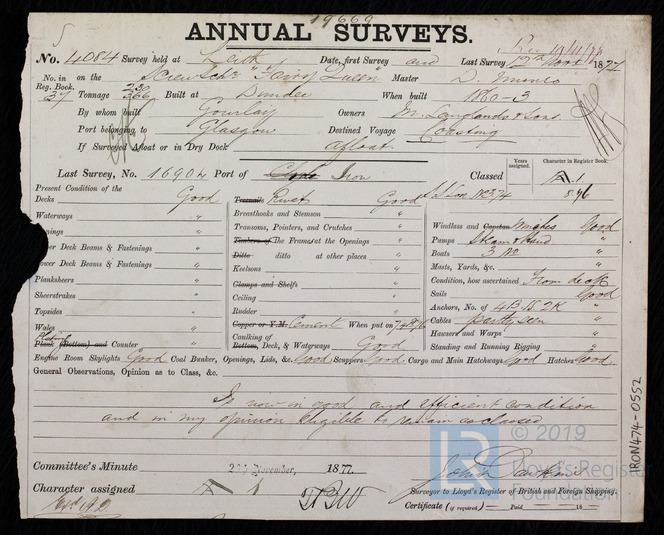 19669
ANNUAL SURVEYS.
No. 4084 Survey held at Leith Date, first Survey and Last Survey 12th Novr 1877
No. in Reg. Book. 37 on the Screw Schr "Fairy Queen" Master D. Munro
Tonnage 366 Built at Dundee When built 1860-3
By whom built Gourlay Owners M. Langlands & Sons.
Port belonging to Glasgow Destined Voyage Coasting
If Surveyed Afloat or in Dry Dock afloat.
Last Survey, No. 16902 Port of Clyde Iron Classed Years assigned. Character in Register Book. A. 1
Present Condition of the
Decks Good
Waterways "
Upper Deck Beams & Fastenings "
Lower Deck Beams & Fastenings "
Planksheers "
Sheerstrakes "
Topsides "
Wales "
Plank (Bottom) and Counter "
Treenails Rivets Good
Breasthooks and Stemson "
Transoms, Pointers, and Crutches "
Timbers of The Frames at the Openings "
Ditto ditto at other places "
Keelsons "
Clamps and Shelfs "
Ceiling "
Rudder "
Copper or Y.M. Cement When put on
Caulking of Bottom, Deck, & Waterways Good
Windlass and Capstan Winches Good
Pumps Steam & Hand "
Boats 3 "
Masts, Yards, &c. "
Condition, how ascertained From deck
Sails Good
Anchors, No. of 4B. 1S. 2K "
Cables partly seen "
Hawsers and Warps "
Standing and Running Rigging "
Engine Room Skylights Good Coal Bunker, Openings, Lids, &c. Good Scuppers Good Cargo and Main Hatchways Good Hatches Good.
General Observations, Opinion as to Class, &c.
Is now in good and efficient condition
and in my opinion eligible to remain as classed
Committee's Minute November, 1877.
Character assigned A 1
Surveyor to Lloyd's Register of British and Foreign Shipping.
Certificate (if required) Paid 18
IRON474-0552
© 2019
LR
Lloyd's Register
Foundation